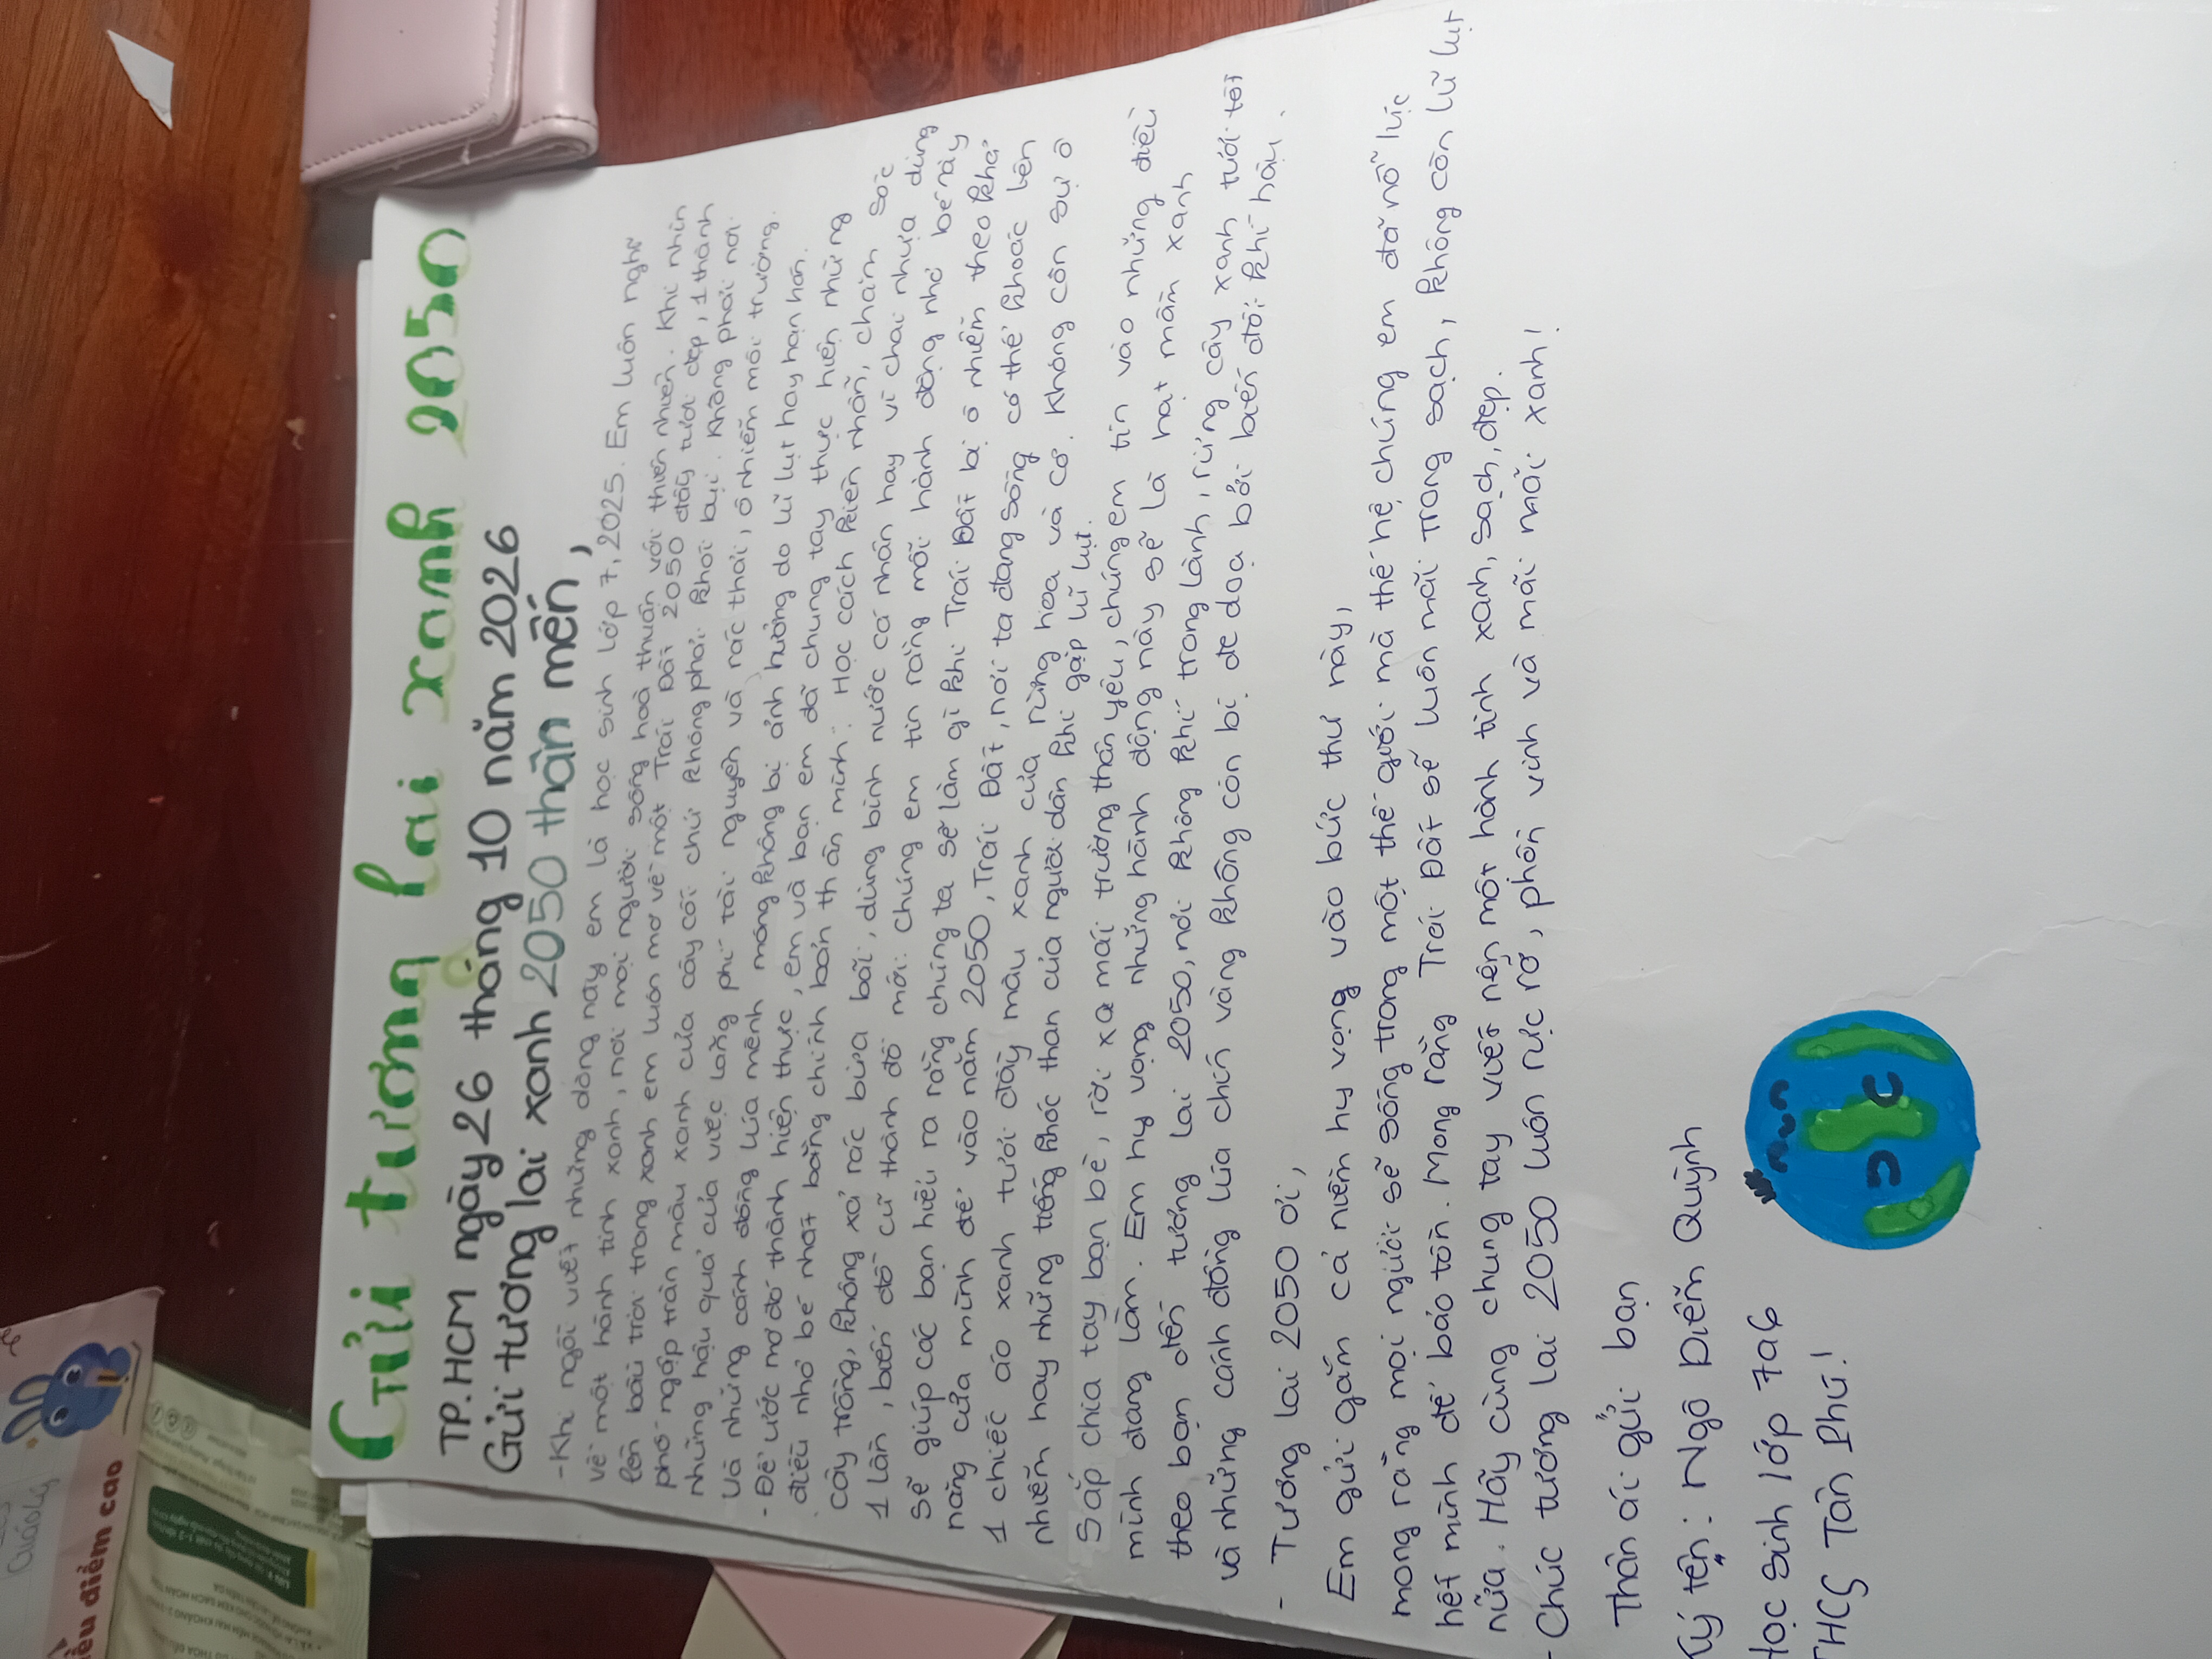 Gửi tương lai xanh 2050
TP.HCM ngày 26 tháng 10 năm 2026
Gửi tương lai xanh 2050 thân mến,
- Khi ngồi viết những dòng này em là học sinh lớp 7, 2025. Em luôn nghĩ
về một hành tinh xanh, nơi mọi người sống hoà thuận với thiên nhiên. Khi nhìn
lên bầu trời trong xanh em luôn mơ về một Trái Đất 2050 đầy tươi đẹp, 1 thành
phố ngập tràn màu xanh của cây cối chứ không phải khói bụi. Không phải nơi
những hậu quả của việc lãng phí tài nguyên và rác thải, ô nhiễm môi trường.
Và những cánh đồng lúa mênh mông không bị ảnh hưởng do lũ lụt hay hạn hán.
- Để ước mơ đó thành hiện thực, em và bạn em đã chung tay thực hiện những
điều nhỏ bé nhất bằng chính bản thân mình: Học cách kiên nhẫn, chăm sóc
cây trồng, không xả rác bừa bãi, dùng bình nước cá nhân hay vì chai nhựa dùng
1 lần, biến đồ cũ thành đồ mới. Chúng em tin rằng mỗi hành động nhỏ bé này
sẽ giúp các bạn hiểu ra rằng chúng ta sẽ làm gì khi Trái Đất bị ô nhiễm theo khả
năng của mình để vào năm 2050, Trái Đất, nơi ta đang sống có thể khoác lên
1 chiếc áo xanh tươi đầy màu xanh của rừng hoa và cỏ. Không còn sự ô
nhiễm hay những tiếng khóc than của người dân khi gặp lũ lụt.
Sắp chia tay bạn bè, rời xa mái trường thân yêu, chúng em tin vào những điều
mình đang làm. Em hy vọng những hành động này sẽ là hạt mầm xanh
theo bạn đến tương lai 2050, nơi không khí trong lành, rừng cây xanh tươi tốt
và những cánh đồng lúa chín vàng không còn bị đe doạ bởi biến đổi khí hậu.
- Tương lai 2050 ơi,
Em gửi gắm cả niềm hy vọng vào bức thư này,
mong rằng mọi người sẽ sống trong một thế giới mà thế hệ chúng em đã nỗ lực
hết mình để bảo tồn. Mong rằng Trái Đất sẽ luôn mãi trong sạch, không còn lũ lụt
nữa. Hãy cùng chung tay viết nên một hành tinh xanh, sạch, đẹp.
- Chúc tương lai 2050 luôn rực rỡ, phồn vinh và mãi mãi xanh!
Thân ái gửi bạn
Ký tên: Ngô Diễm Quỳnh
Học sinh lớp 7a6
THCS Tân Phú!
iều điểm cao